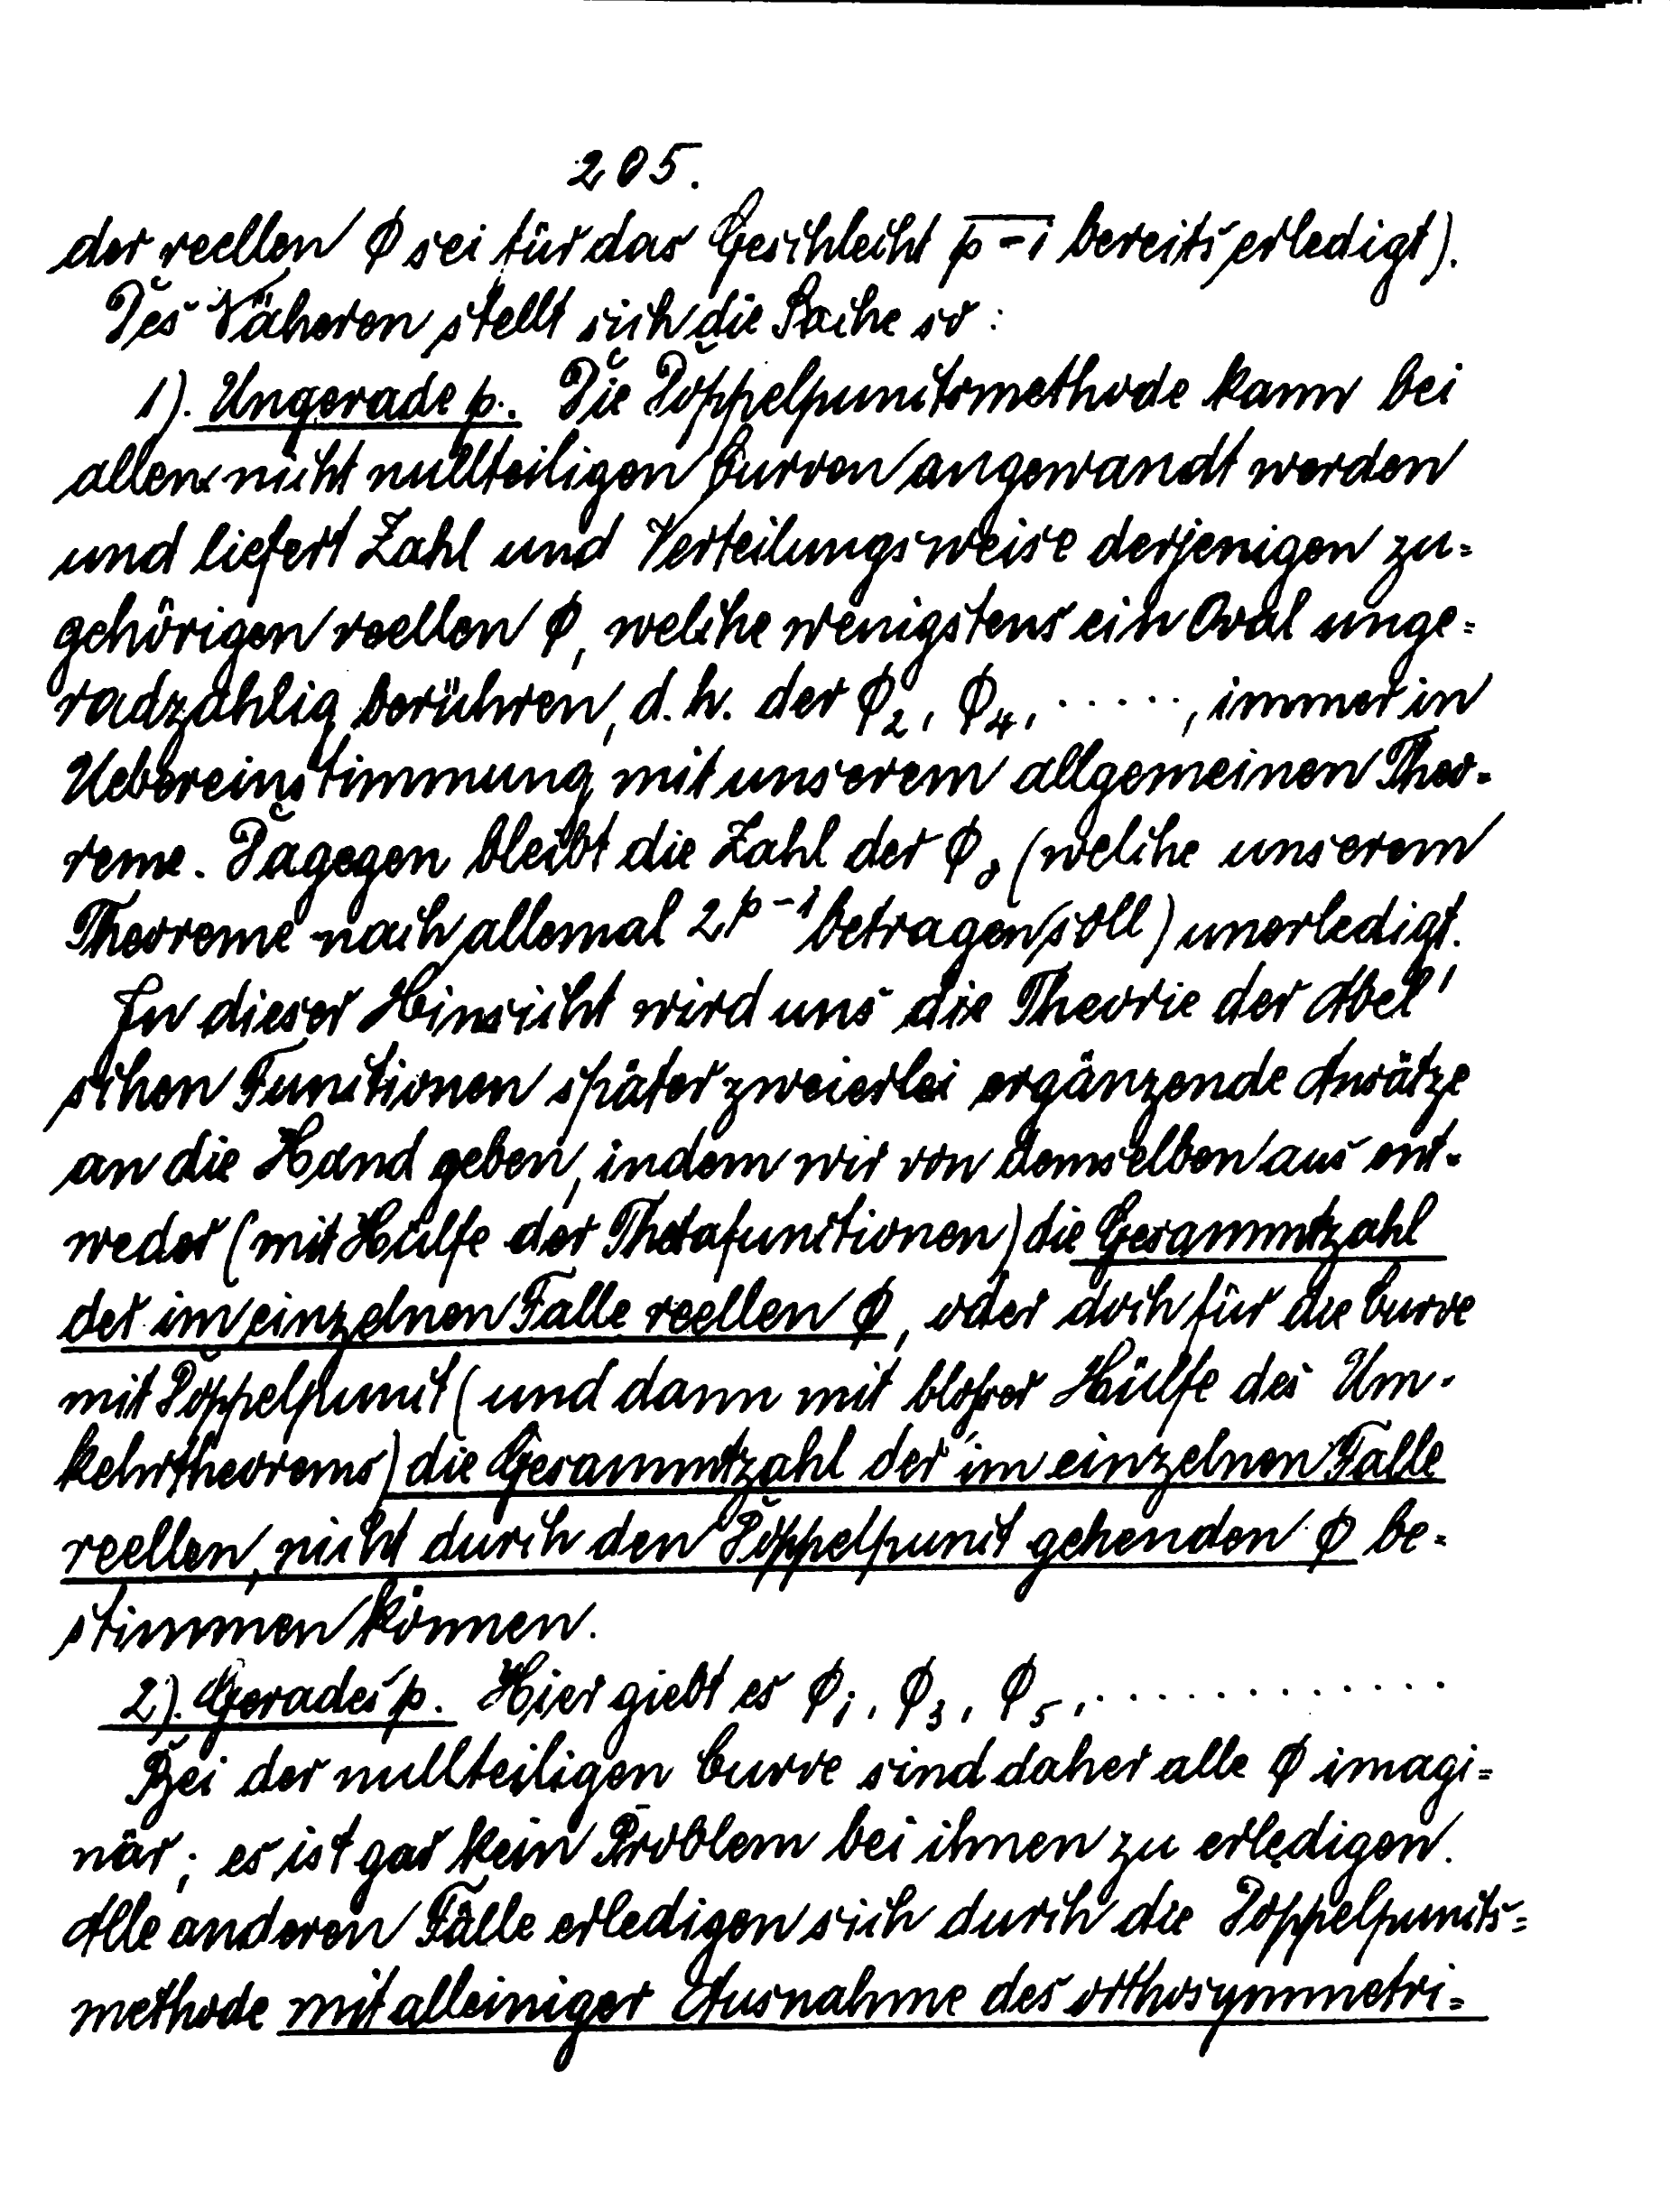 205.
der reellen φ sei für das Geschlecht p-1 bereits erledigt).
Des Näheren stellt sich die Sache so:
1). Ungerade p. Die Doppelpunctsmethode kann bei
allen nicht nullteiligen Curven angewandt werden
und liefert Zahl und Verteilungsweise derjenigen zu=
gehörigen reellen φ, welche wenigstens ein Oval unge=
radzahlig berühren, d. h. der φ₂, φ₄, ....., immer in
Uebereinstimmung mit unserem allgemeinen Theo-
reme. Dagegen bleibt die Zahl der φ₀ (welche unserem
Theoreme nach allemal 2^{p-1} betragen soll) unerledigt.
In dieser Hinsicht wird uns die Theorie der Abel'
schen Functionen später zweierlei ergänzende Ansätze
an die Hand geben, indem wir von demselben aus ent-
weder (mit Hülfe der Thetafunctionen) die Gesammtzahl
der im einzelnen Falle reellen φ, oder doch für die Curve
mit Doppelpunct (und dann mit blosser Hülfe des Um-
kehrtheorems) die Gesammtzahl der im einzelnen Falle
reellen, nicht durch den Doppelpunct gehenden φ be-
stimmen können.
2). Gerades p. Hier giebt es φ₁, φ₃, φ₅, .............
Bei der nullteiligen Curve sind daher alle φ imagi=
när; es ist gar kein Problem bei ihnen zu erledigen.
Alle anderen Fälle erledigen sich durch die Doppelpuncts=
methode mit alleiniger Ausnahme des orthosymmetri=